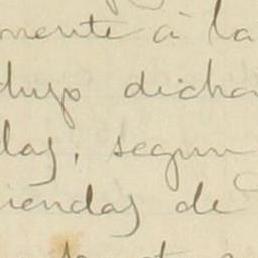 mente a la
dujo dicha
das, segun
iendas de